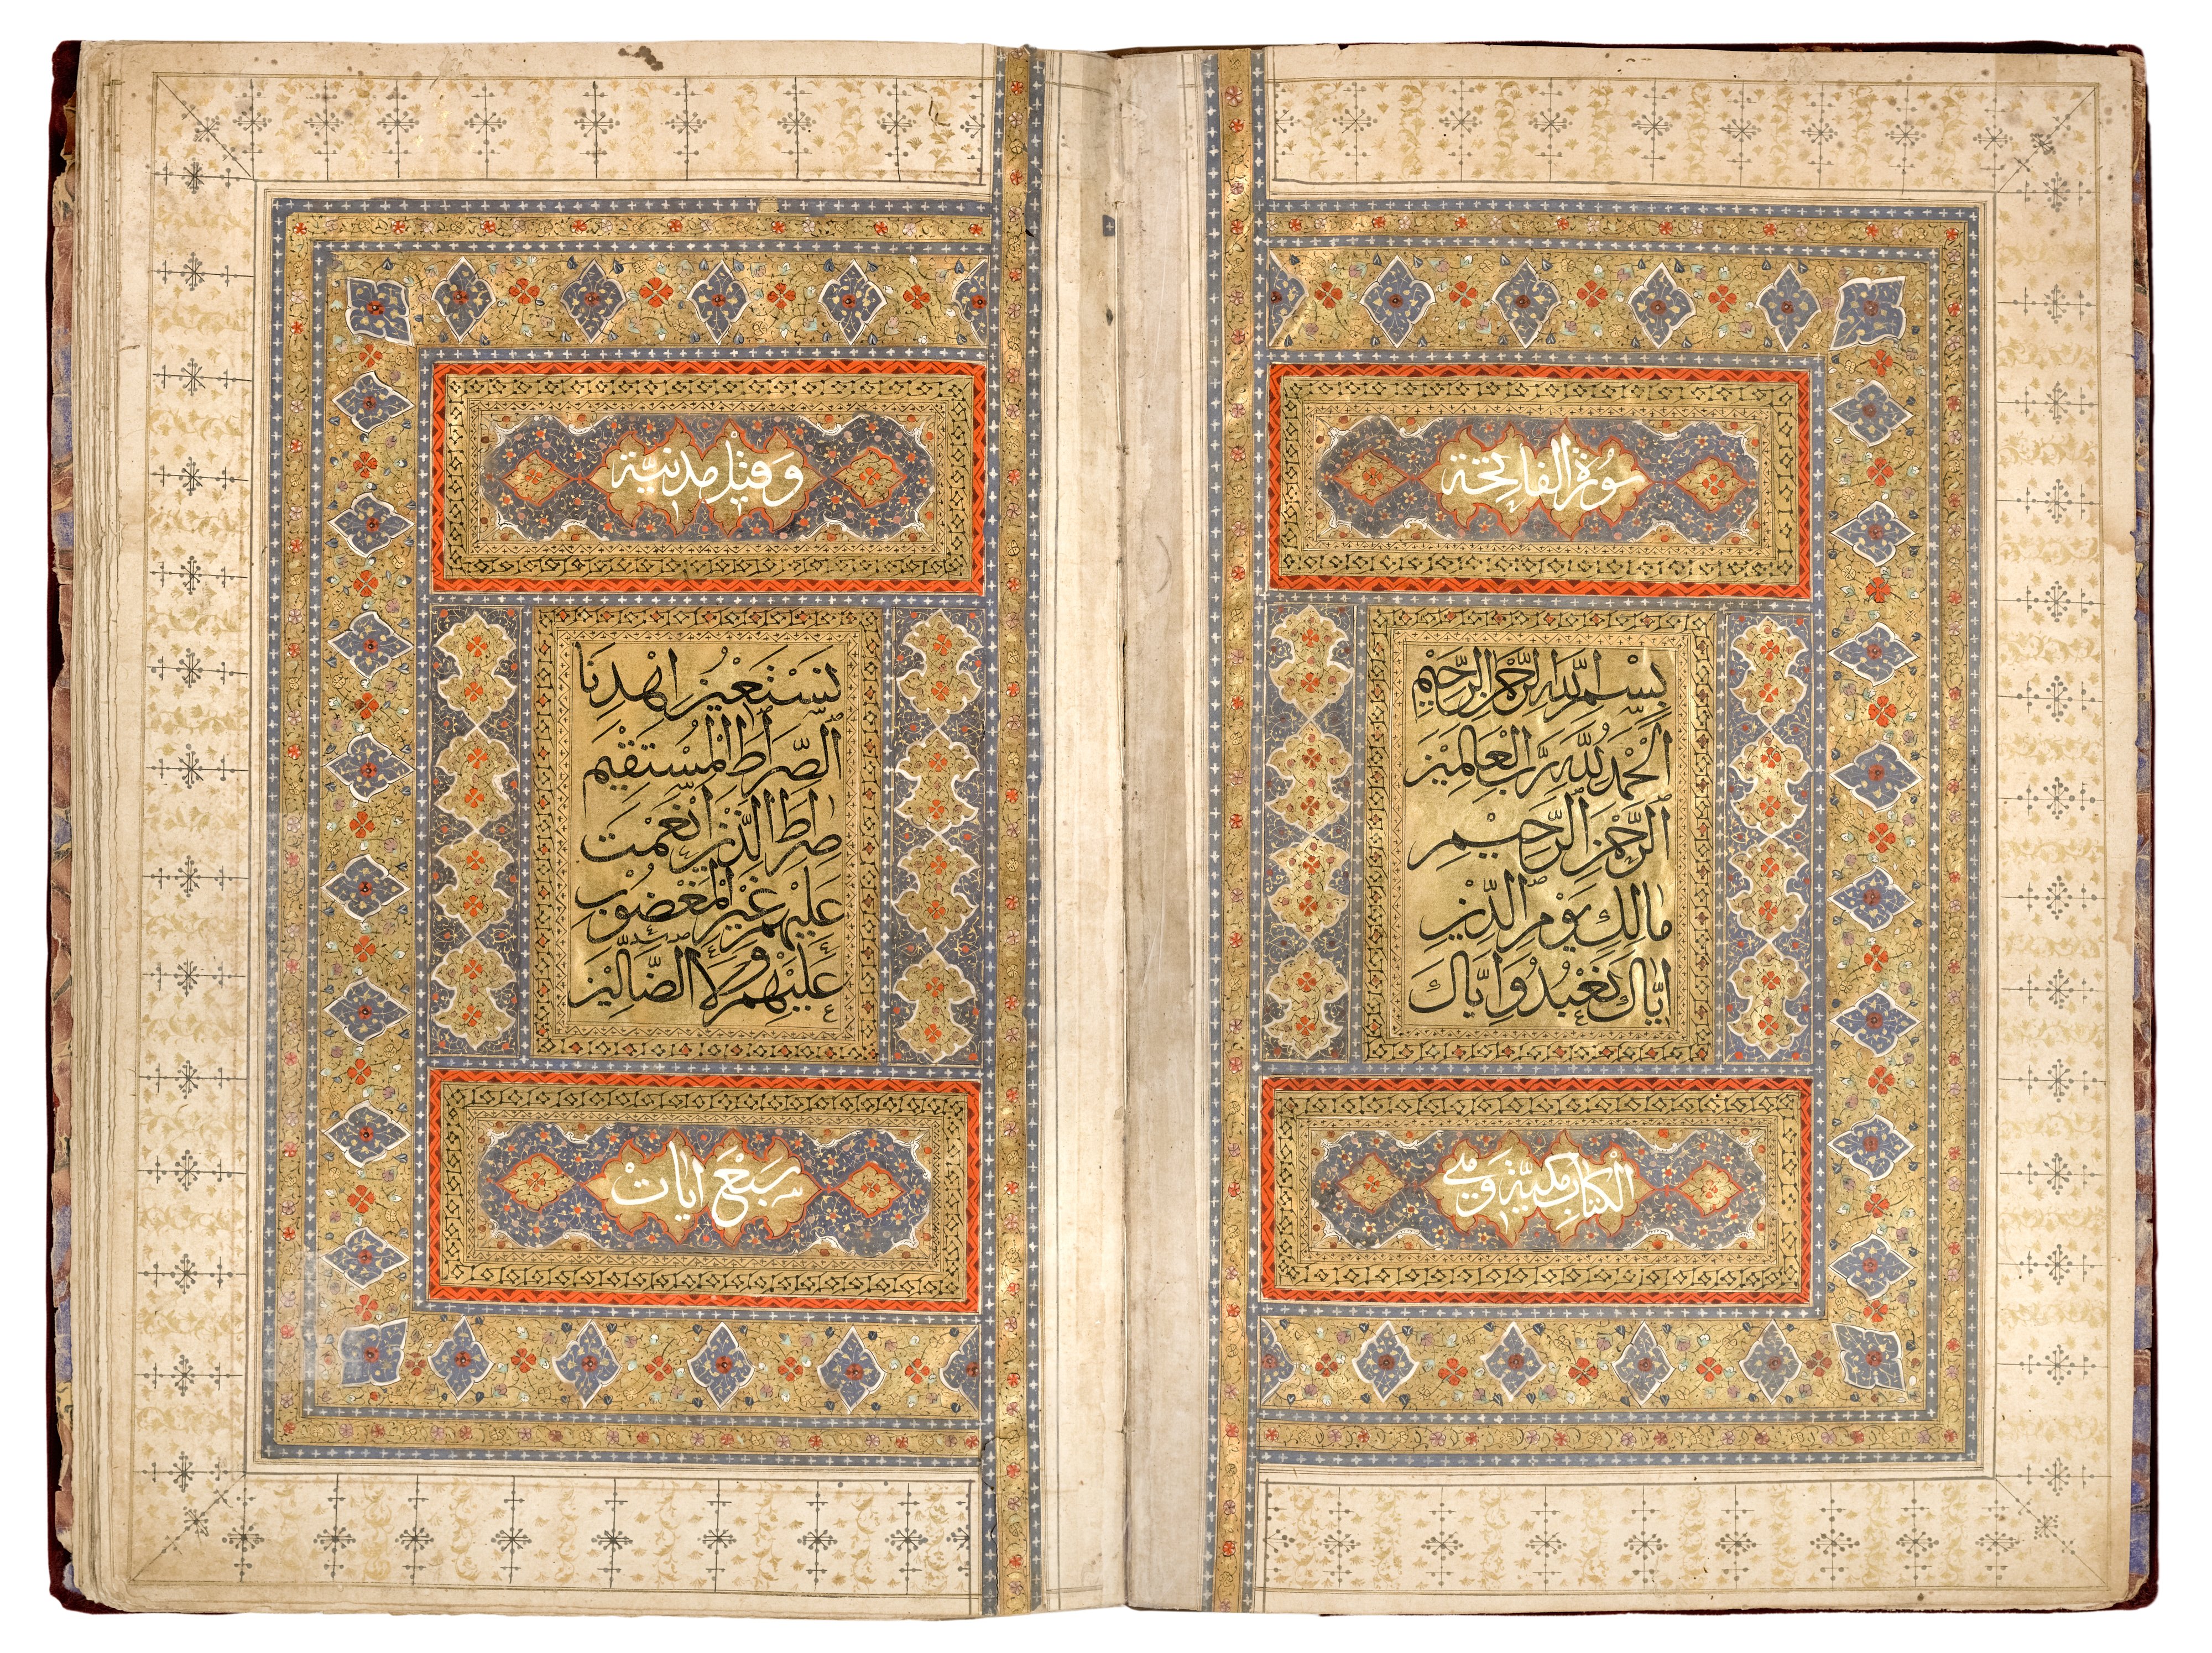 سُورَةُ الْفَاتِحَة
بِسْمِ اللّهِ الرَّحْمنِ الرَّحِيْمِ
اَلْحَمْدُ لِلّهِ رَبِّ الْعالَمِيْنَ
اَلرَّحْمنِ الرَّحِيْمِ
مالِكِ يَوْمِ الدِّيْنِ
اِيّاكَ نَعْبُدُ وَاِيّاكَ
الْكِتابِ مَكّيَّة وَهي
وَقِيْلَ مَدَنِيَّة
نَسْتَعِيْنُ اِهْدِنَا
الصِّراطَ الْمُسْتَقِيْمَ
صِراطَ الَّذِيْنَ اَنْعَمْتَ
عَلَيْهِمْ غَيْرِ الْمَغْضُوْبِ
عَلَيْهِمْ وَلَا الضَّالِّيْنَ
سَبْعَ ايات